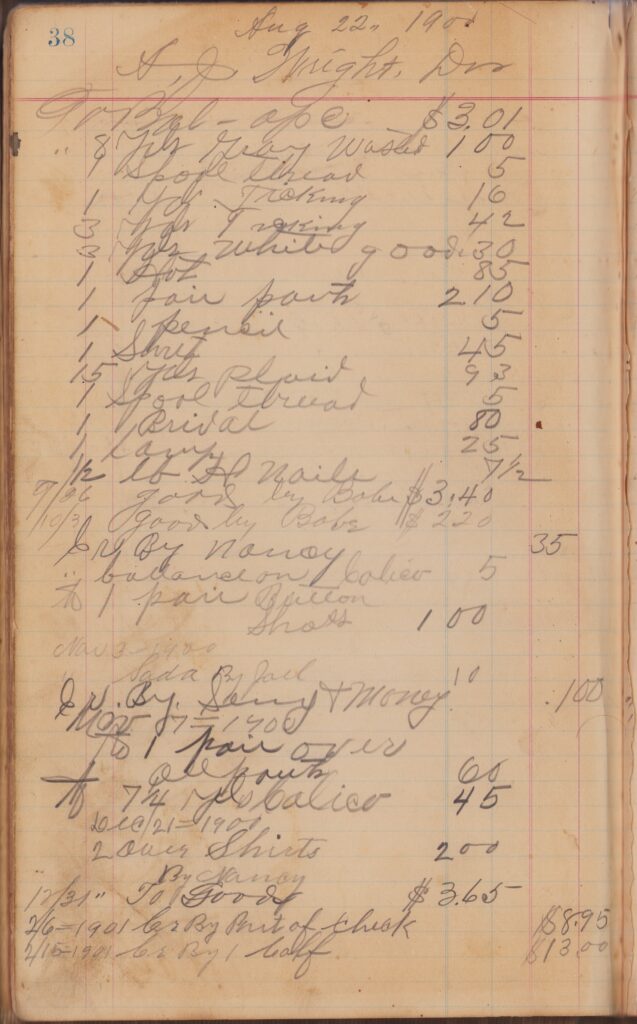 38
Aug 22" 1900
A. J. Wright, Dr
To Bal - ape $3.01
" 8 Yds Gray 1 00
1 Spool thread 5
1 Yds Ticking 16
3 Yds Ticking 42
3 Yds White goods 30
1 Hat 85
1 pair pants 2 10
1 pencil 5
1 Shirt 45
15 Yds plaid 93
1 Spool thread 5
1 Bridal 80
1 Lamp 25
1/2 lb Nails 7 1/2
9/26 good by Babe $3.40
10/3 good by Babe $2 20
Cr By Nancy 35
" ballance on Calico 5
To 1 pair Button
Shoes 1 00
Nov 3 - 1900
Soda By Joel 10
Cr. By. & Money .100
Nov 7 = 1900
To 1 pair over
all pants 60
To 7 1/4 yds Calico 45
Dec/21 = 1900
2 over Shirts 2 00
By Nancy
12/31" To Goods $3.65
2/6=1901 Cr By Part of Check $8.95
2/15=1901 Cr By 1 Calf $13.00